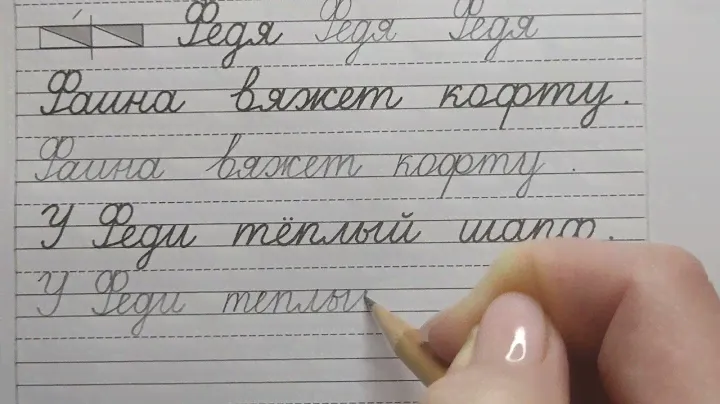 Федя Федя Федя
Фаина вяжет кофту.
Фаина вяжет кофту.
У Феди тёплый шарф.
У Феди теплыи